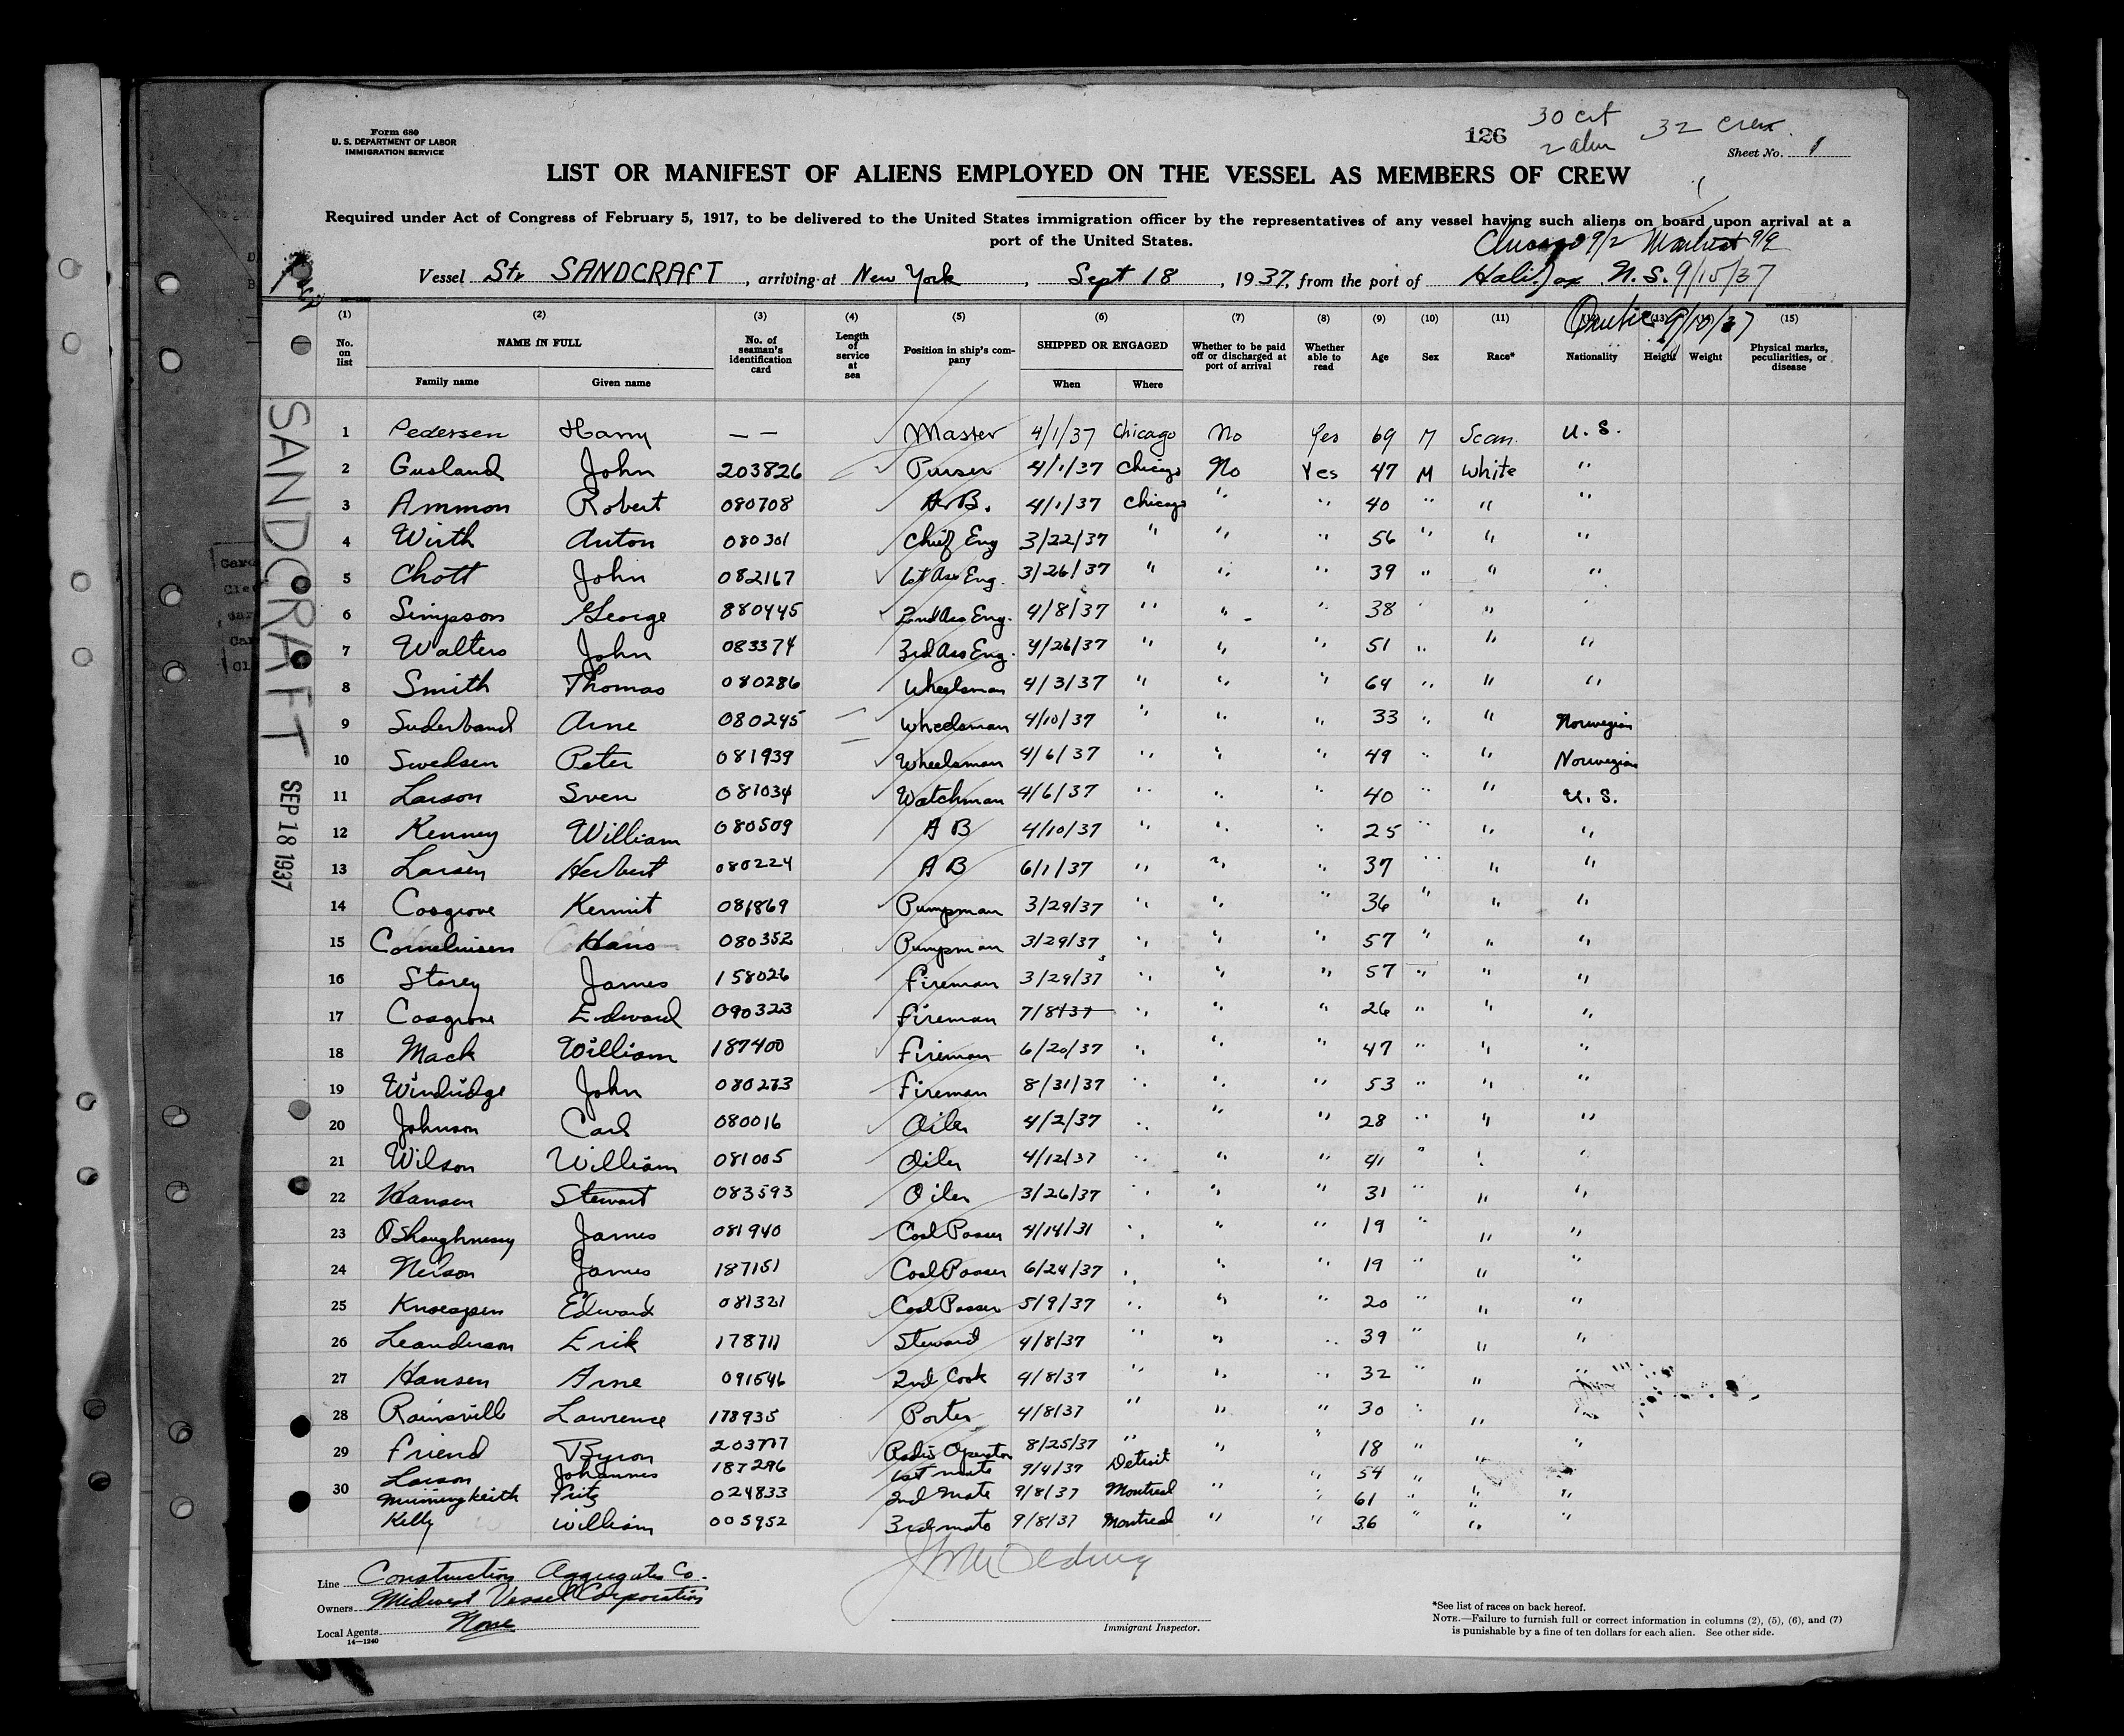 Form 680
U. S. DEPARTMENT OF LABOR
IMMIGRATION SERVICE
126 30 cit 32 crew
2 alen
Sheet No. 1
LIST OR MANIFEST OF ALIENS EMPLOYED ON THE VESSEL AS MEMBERS OF CREW
Required under Act of Congress of February 5, 1917, to be delivered to the United States immigration officer by the representatives of any vessel having such aliens on board upon arrival at a
port of the United States.
Chicago 9/2 9/9
Vessel Str SANDCRAFT, arriving at New York, Sept 18, 1937, from the port of Halifax N. S. 9/15/37
9/10/37
(1) (2) (3) (4) (5) (6) (7) (8) (9) (10) (11) (12) (13) (14) (15)
No. on list NAME IN FULL No. of seaman's identification card Length of service at sea Position in ship's company SHIPPED OR ENGAGED Whether to be paid off or discharged at port of arrival Whether able to read Age Sex Race* Nationality Height Weight Physical marks, peculiarities, or disease
Family name Given name When Where
1 Pedersen Harry — — Master 4/1/37 Chicago No Yes 69 M Scan. U. S.
2 Gusland John 203826 Purser 4/1/37 Chicago No Yes 47 M White "
3 Ammon Robert 080708 A.B. 4/1/37 Chicago " " 40 " " "
4 Wirth Anton 080301 Chief Eng 3/22/37 " " " 56 " " "
5 Chott John 082167 1st Ass Eng. 3/26/37 " " " 39 " " "
6 Simpson George 880445 2nd Ass Eng. 4/8/37 " " " 38 " " "
7 Walters John 083374 3rd Ass Eng. 4/26/37 " " " 51 " " "
8 Smith Thomas 080286 Wheelsman 4/3/37 " " " 64 " " "
9 Suderband Arne 080245 Wheelsman 4/10/37 " " " 33 " " Norwegian
10 Swedsen Peter 081939 Wheelsman 4/6/37 " " " 49 " " Norwegian
11 Larson Sven 081034 Watchman 4/6/37 " " " 40 " " U. S.
12 Kenney William 080509 A B 4/10/37 " " " 25 " " "
13 Larsen Herbert 080224 A B 6/1/37 " " " 37 " " "
14 Cosgrove Kermit 081869 Pumpman 3/29/37 " " " 36 " " "
15 Corneliusen Hans 080352 Pumpman 3/29/37 " " " 57 " " "
16 Storey James 158026 Fireman 3/29/37 " " " 57 " " "
17 Cosgrove Edward 090323 Fireman 7/8/37 " " " 26 " " "
18 Mack William 187400 Fireman 6/20/37 " " " 47 " " "
19 Windridge John 080273 Fireman 8/31/37 " " " 53 " " "
20 Johnson Carl 080016 Oiler 4/2/37 " " " 28 " " "
21 Wilson William 081005 Oiler 4/12/37 " " " 41 " " "
22 Hansen Stewart 083593 Oiler 3/26/37 " " " 31 " " "
23 O'Shaughnessy James 081940 Coal Passer 4/14/31 " " " 19 " " "
24 Nelson James 187151 Coal Passer 6/24/37 " " " 19 " " "
25 Knoespen Edward 081321 Coal Passer 5/9/37 " " " 20 " " "
26 Leanderson Erik 178711 Steward 4/8/37 " " " 39 " " "
27 Hansen Arne 091546 2nd Cook 4/8/37 " " " 32 " " "
28 Rainsville Lawrence 178935 Porter 4/8/37 " " " 30 " " "
29 Friend Byron 203777 Radio Operator 8/25/37 " " " 18 " " "
Larson Johannes 187296 1st mate 9/4/37 Detroit 54 "
30 Munningkeith Fritz 024833 2nd Mate 9/8/37 Montreal " " 61 " " "
Kelly William 005952 3rd mate 9/8/37 Montreal " " 36 " " "
SANDCRAFT
SEP 18 1937
Line Construction Aggregates Co.
Owners Midwest Vessel Corporation
Local Agents None
14—1240
Immigrant Inspector.
*See list of races on back hereof.
NOTE.—Failure to furnish full or correct information in columns (2), (5), (6), and (7)
is punishable by a fine of ten dollars for each alien. See other side.